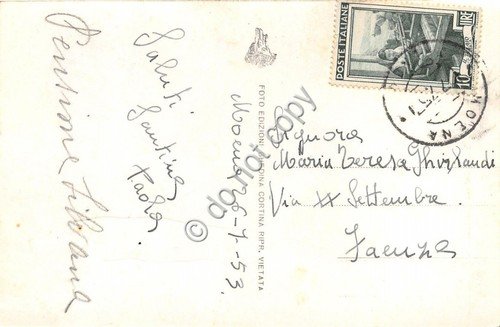 Pensione Silvana
Saluti
Santina
Paola.
Moena 26-7-53.
FOTO EDIZIONI GHEDINA CORTINA RIPR. VIETATA
POSTE ITALIANE
10 LIRE
MOENA
Signora
Maria Teresa Ghirlandi
Via XX Settembre.
Faenza
© do not copy